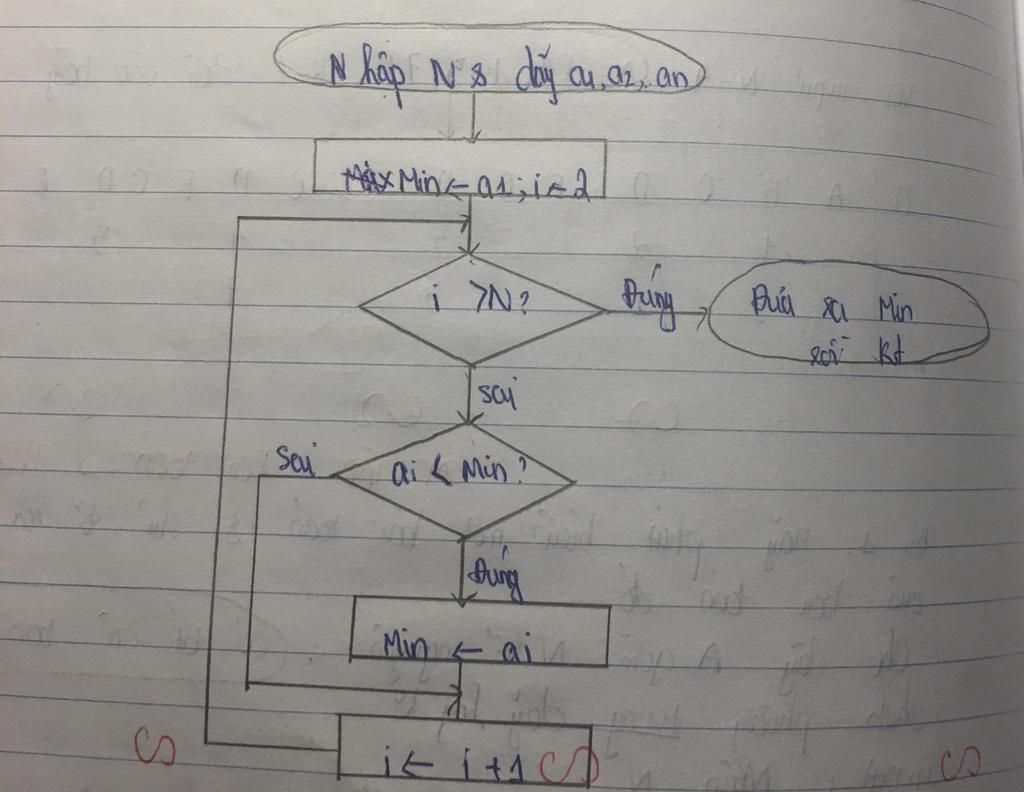 Nhập N & dãy a1, a2,.. an
Min ← a1; i ← 2
i > N?
Đúng
Đưa ra Min
rồi kt
sai
ai < Min?
Sai
Đúng
Min ← ai
i ← i + 1